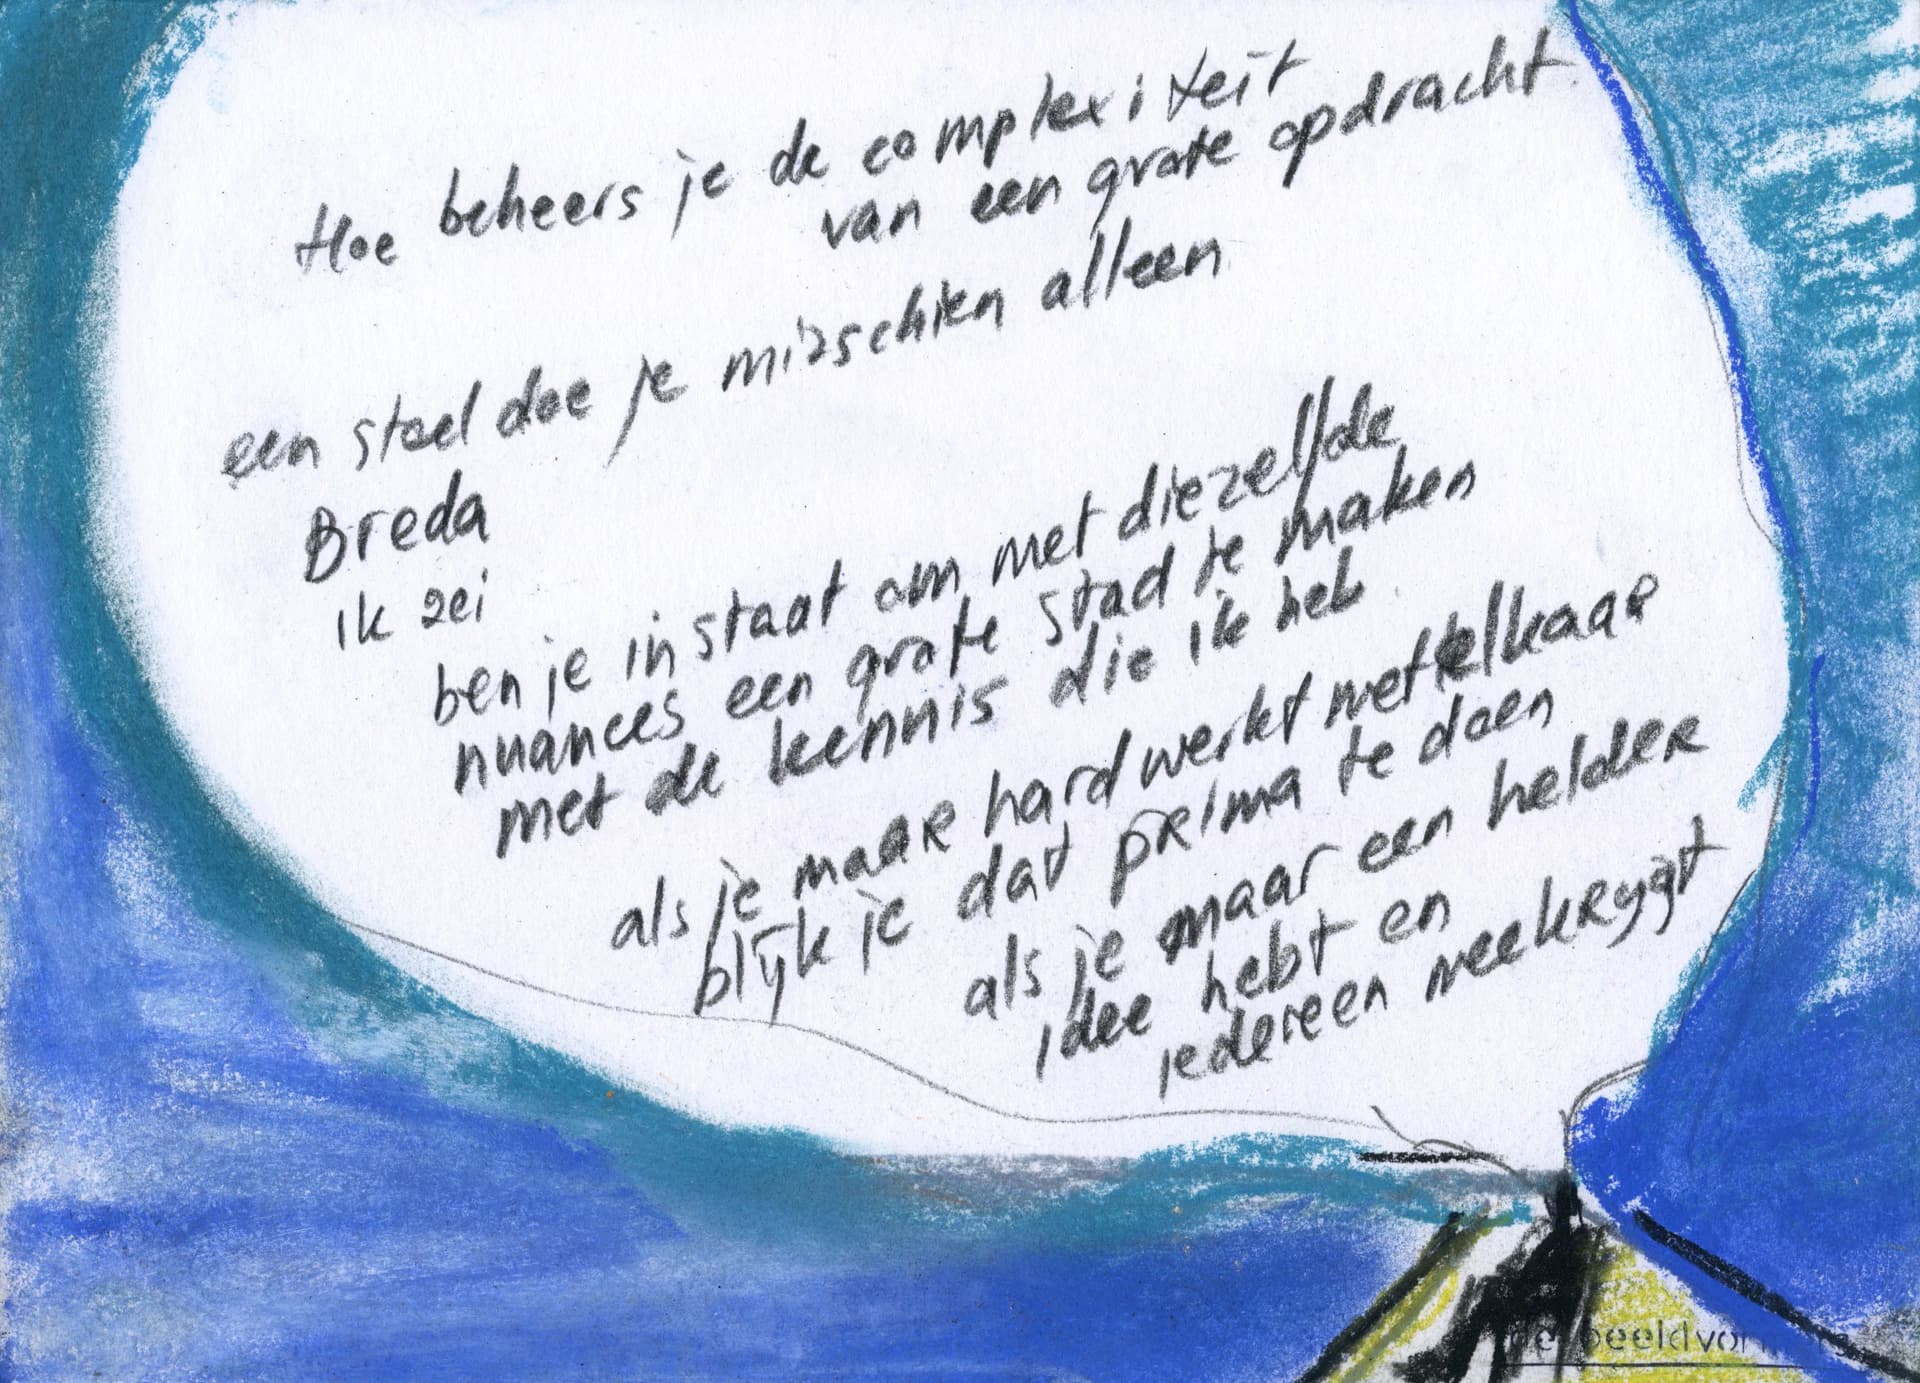 Hoe beheers je de complexiteit
van een grote opdracht.
een stoel doe je misschien alleen
Breda
ik zei
ben je in staat om met diezelfde
nuances een grote stad te maken
met de kennis die ik heb.
als je maar hard werkt met elkaar
blijk je dat prima te doen
als je maar een helder
idee hebt en
iedereen meekrijgt